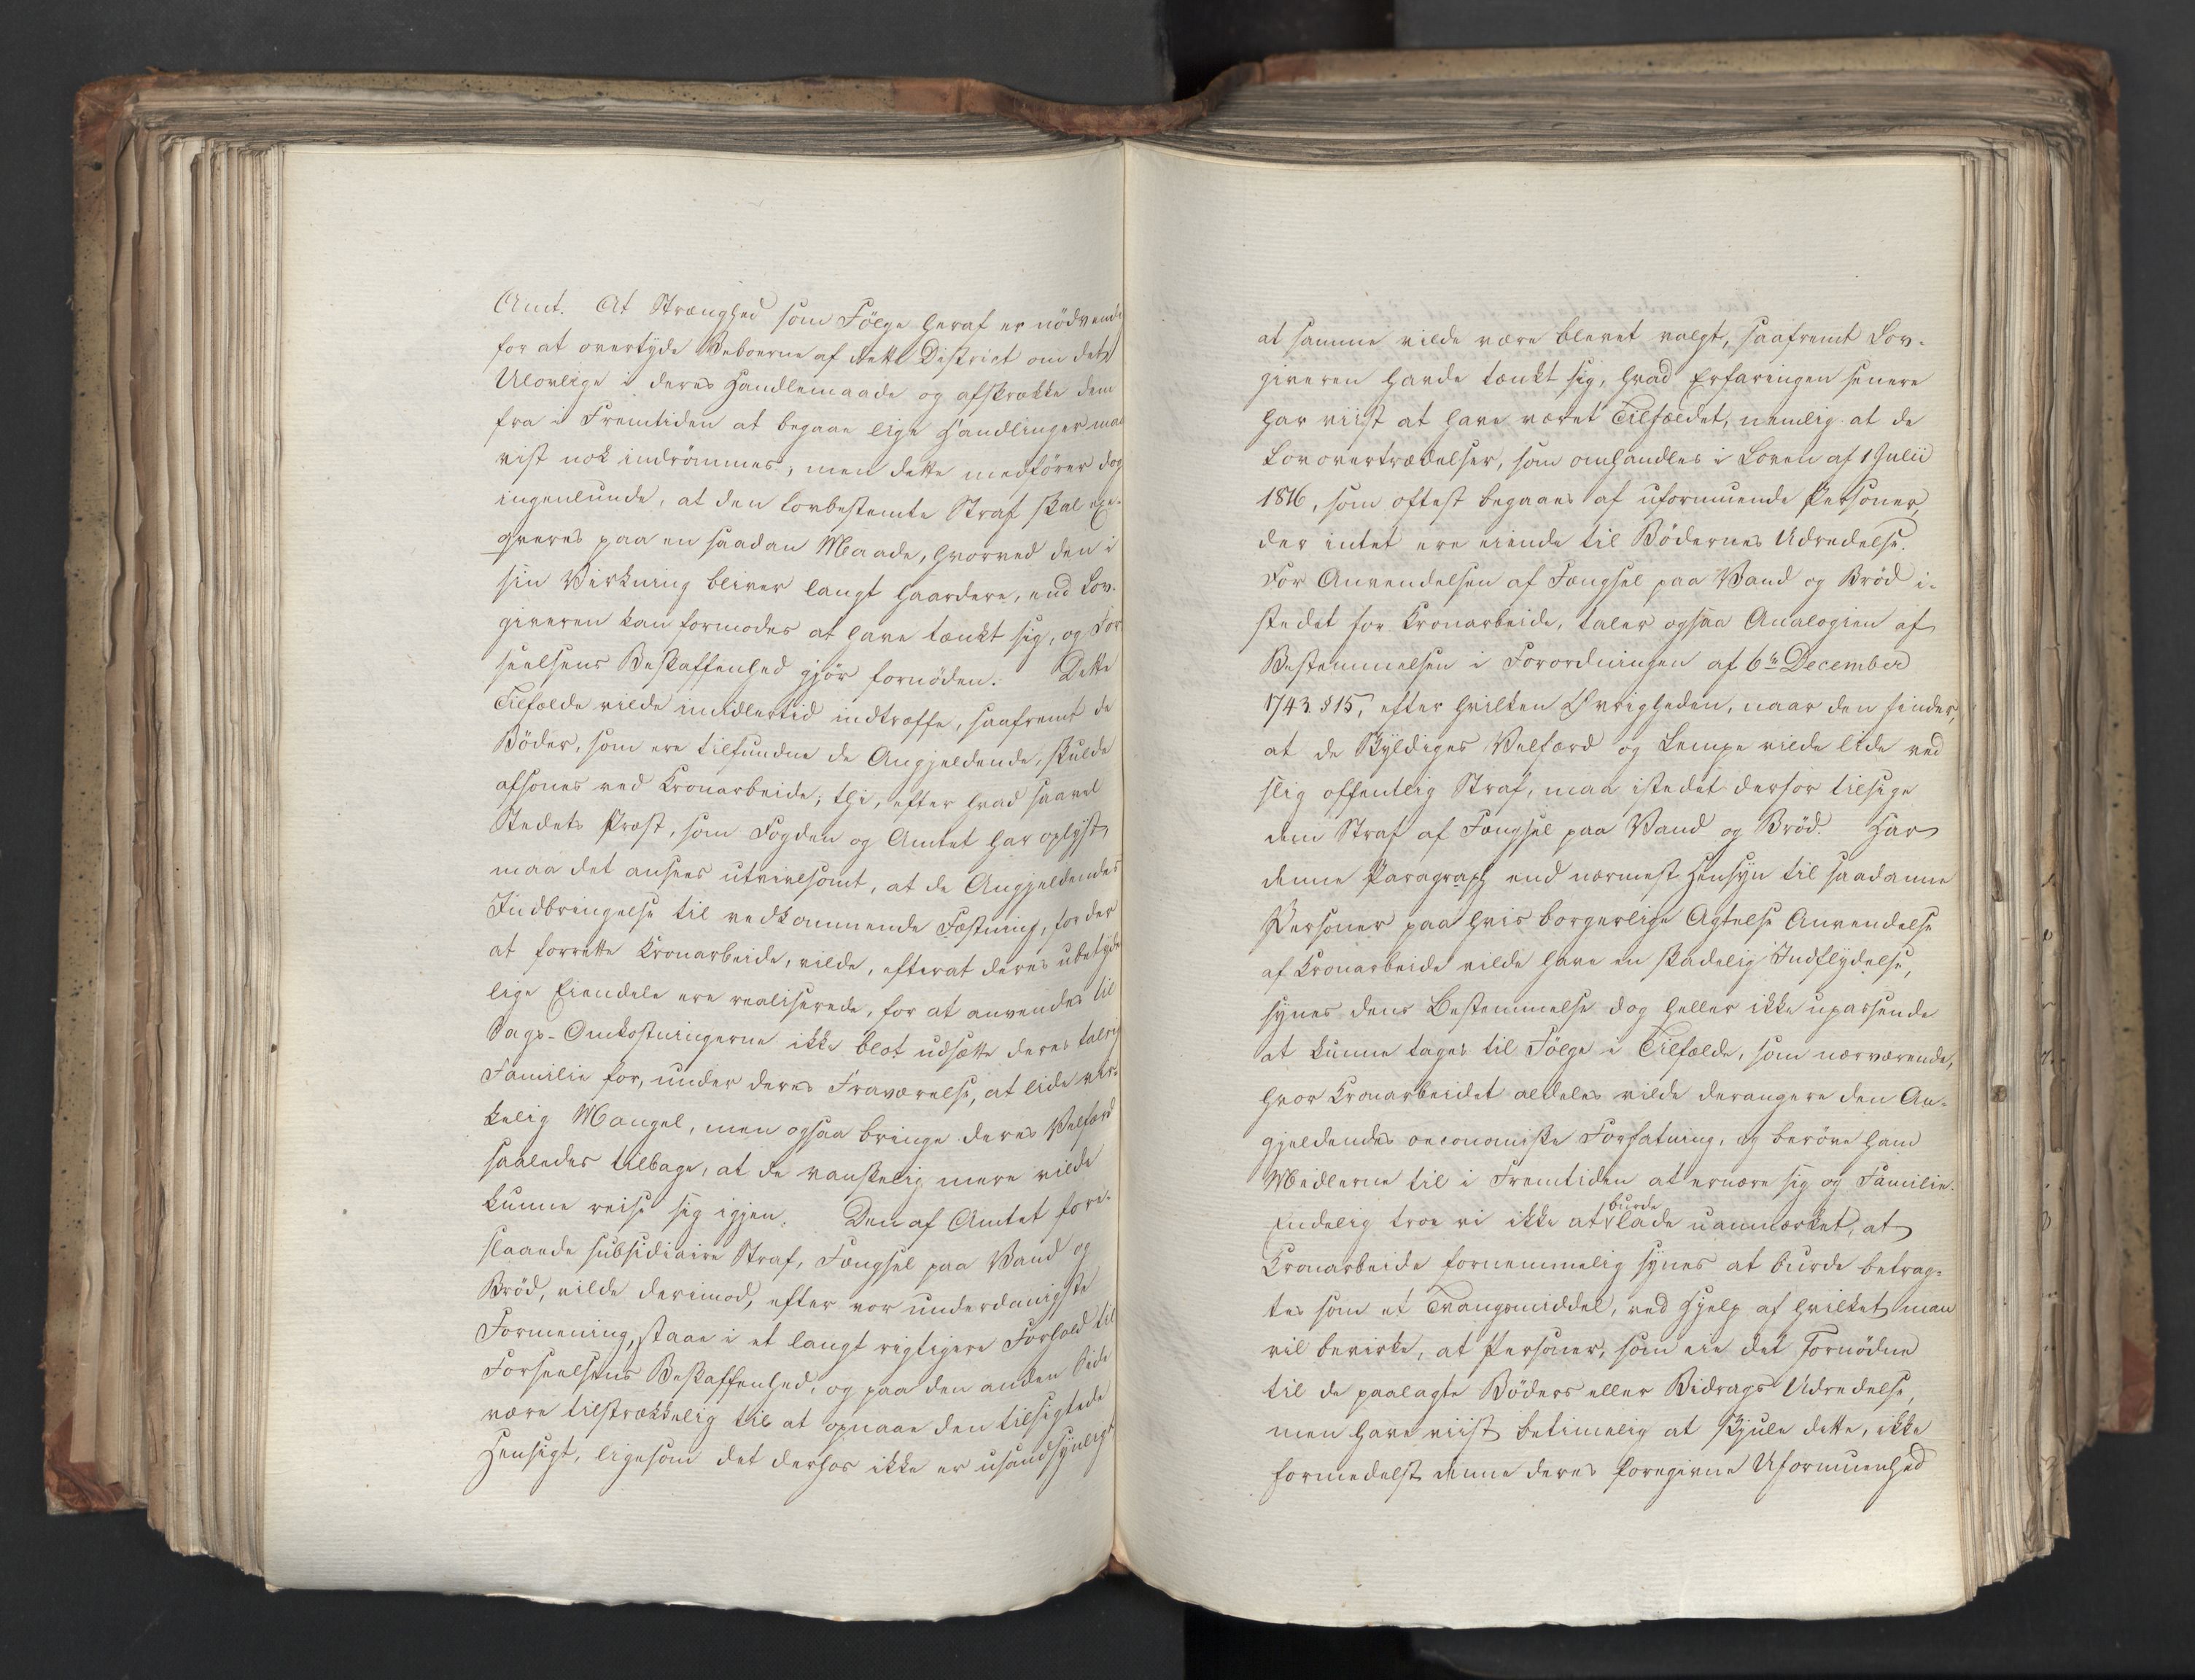 Amt. At Strænghed som Følge heraf er nødvend
for at overtyde Beboerne af dette District om det
Ulovlige i deres Handlemaade og afskrække dem
fra i Fremtiden at begaae lige Handlinger maa
vist nok indrömmes, men dette medförer dog
ingenlunde, at den lovbestemte Straf skal exe-
qveres paa en saadan Maade, hvorved den i
sin Virkning bliver langt haardere, end Lov-
giveren kan formodes at have tænkt sig, og For
seelsens Beskaffenhed gjör fornöden. Dette
Tilfælde vilde imidlertid indtræffe, saafremt de
Böder, som ere tilfundne de Angjeldende, skulde
afsones ved Kronarbeide; thi, efter hvad saavel
Stedets Præst, som Fogden og Amtet har oplyst,
maa det ansees utvivlsomt, at de Angjeldendes
Indbringelse til vedkommende Fæstning, for der
at forrette Kronarbeide, vilde, efterat deres ubetyde
lige Eiendele ere realiserede, for at anvendes til
Sags-Omkostningerne ikke blot udsætte deres talrig
Familie for, under deres Fraværelse, at lide vir-
kelig Mangel, men ogsaa bringe deres Velfærd
saaledes tilbage, at de vanskelig mere vilde
kunne reise sig igjen. Den af Amtet fore-
slaaede subsidiaire Straf, Fængsel paa Vand og
Bröd, vilde derimod, efter vor underdanigste
Formening, staae i et langt rigtigere Forhold til
Forseelsens Beskaffenhed, og paa den anden Side
være tilstrækkelig til at opnaae den tilsigtede
Hensigt, ligesom det derhos ikke er usandsynligt
at samme vilde være blevet valgt, saafremt Lov-
giveren havde tænkt sig, hvad Erfaringen senere
har viist at have været Tilfældet, nemlig at de
Lovovertrædelser, som omhandles i Loven af 1 Julii
1816, som oftest begaaes af uformuende Personer,
der intet ere eiende til Bödernes Udredelse.
For Anvendelsen af Fængsel paa Vand og Bröd i-
stedet for Kronarbeide, taler ogsaa Analogien af
Bestemmelsen i Forordningen af 6te December
1743. § 15, efter hvilken Øvrigheden, naar den finder,
at de Skyldiges Velfærd og Lempe vilde lide ved
slig offentlig Straf, maa istedet derfor tilsige
dem Straf af Fængsel paa Vand og Bröd. Har
denne Paragraph end nærmest Hensyn til saadanne
Personer paa hvis borgerlige Agtelse Anvendelse
af Kronarbeide vilde have en skadelig Indflydelse,
synes dens Bestemmelse dog heller ikke upassende
at kunne tages til Fölge i Tilfælde, som nærværende,
hvor Kronarbeidet aldeles vilde derangere den An-
gjeldendes oeconomiske Forfatning, og beröve ham
Midlerne til i Fremtiden at ernære sig og Familie.
Endelig troe vi ikke at burde lade uanmærket, at
Kronarbeide fornemmelig synes at burde betrag-
tes som et Tvangsmiddel, ved Hjelp af hvilket man
vil bevirke, at Personer, som eie det Fornödne
til de paalagte Böders eller Bidrags Udredelse,
men have viist betimelig at skjule dette, ikke
formedelst denne deres foregivne Uformuenhed